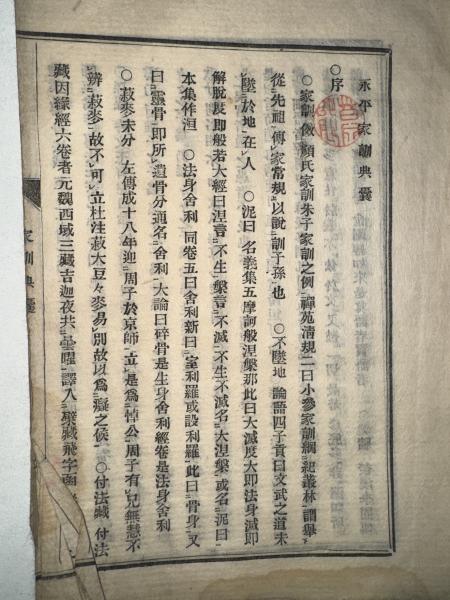 永平家訓典嚢
〇序
〇家訓倣顏氏家訓朱子家訓之例禪苑清規二曰小參家訓綱紀叢林謂擧
從先祖傳家常規以説訓子孫也 〇不墜地 論語四子貢曰文武之道未
墜於地在人 〇泥曰 名義集五摩訶般涅槃那此曰大滅度大即法身滅即
解脱度即般若大經曰涅言不生槃言不滅不生不滅名大涅槃或名泥曰
本集作洹 〇法身舍利 同卷五曰舍利新曰室利羅或設利羅此曰骨身又
曰靈骨即所遺骨分通名舍利 大論曰碎骨是生身舍利經卷是法身舍利
〇菽麥未分 左傳成十八年迎周子於京師立是爲悼公周子有兄無慧不
辨菽麥故不可立杜注菽大豆豆麥易別故以爲癡之候 〇付法藏 付法
藏因緣經六卷者元魏西域三藏吉迦夜共曇曜譯入藏飛字函
家訓典嚢